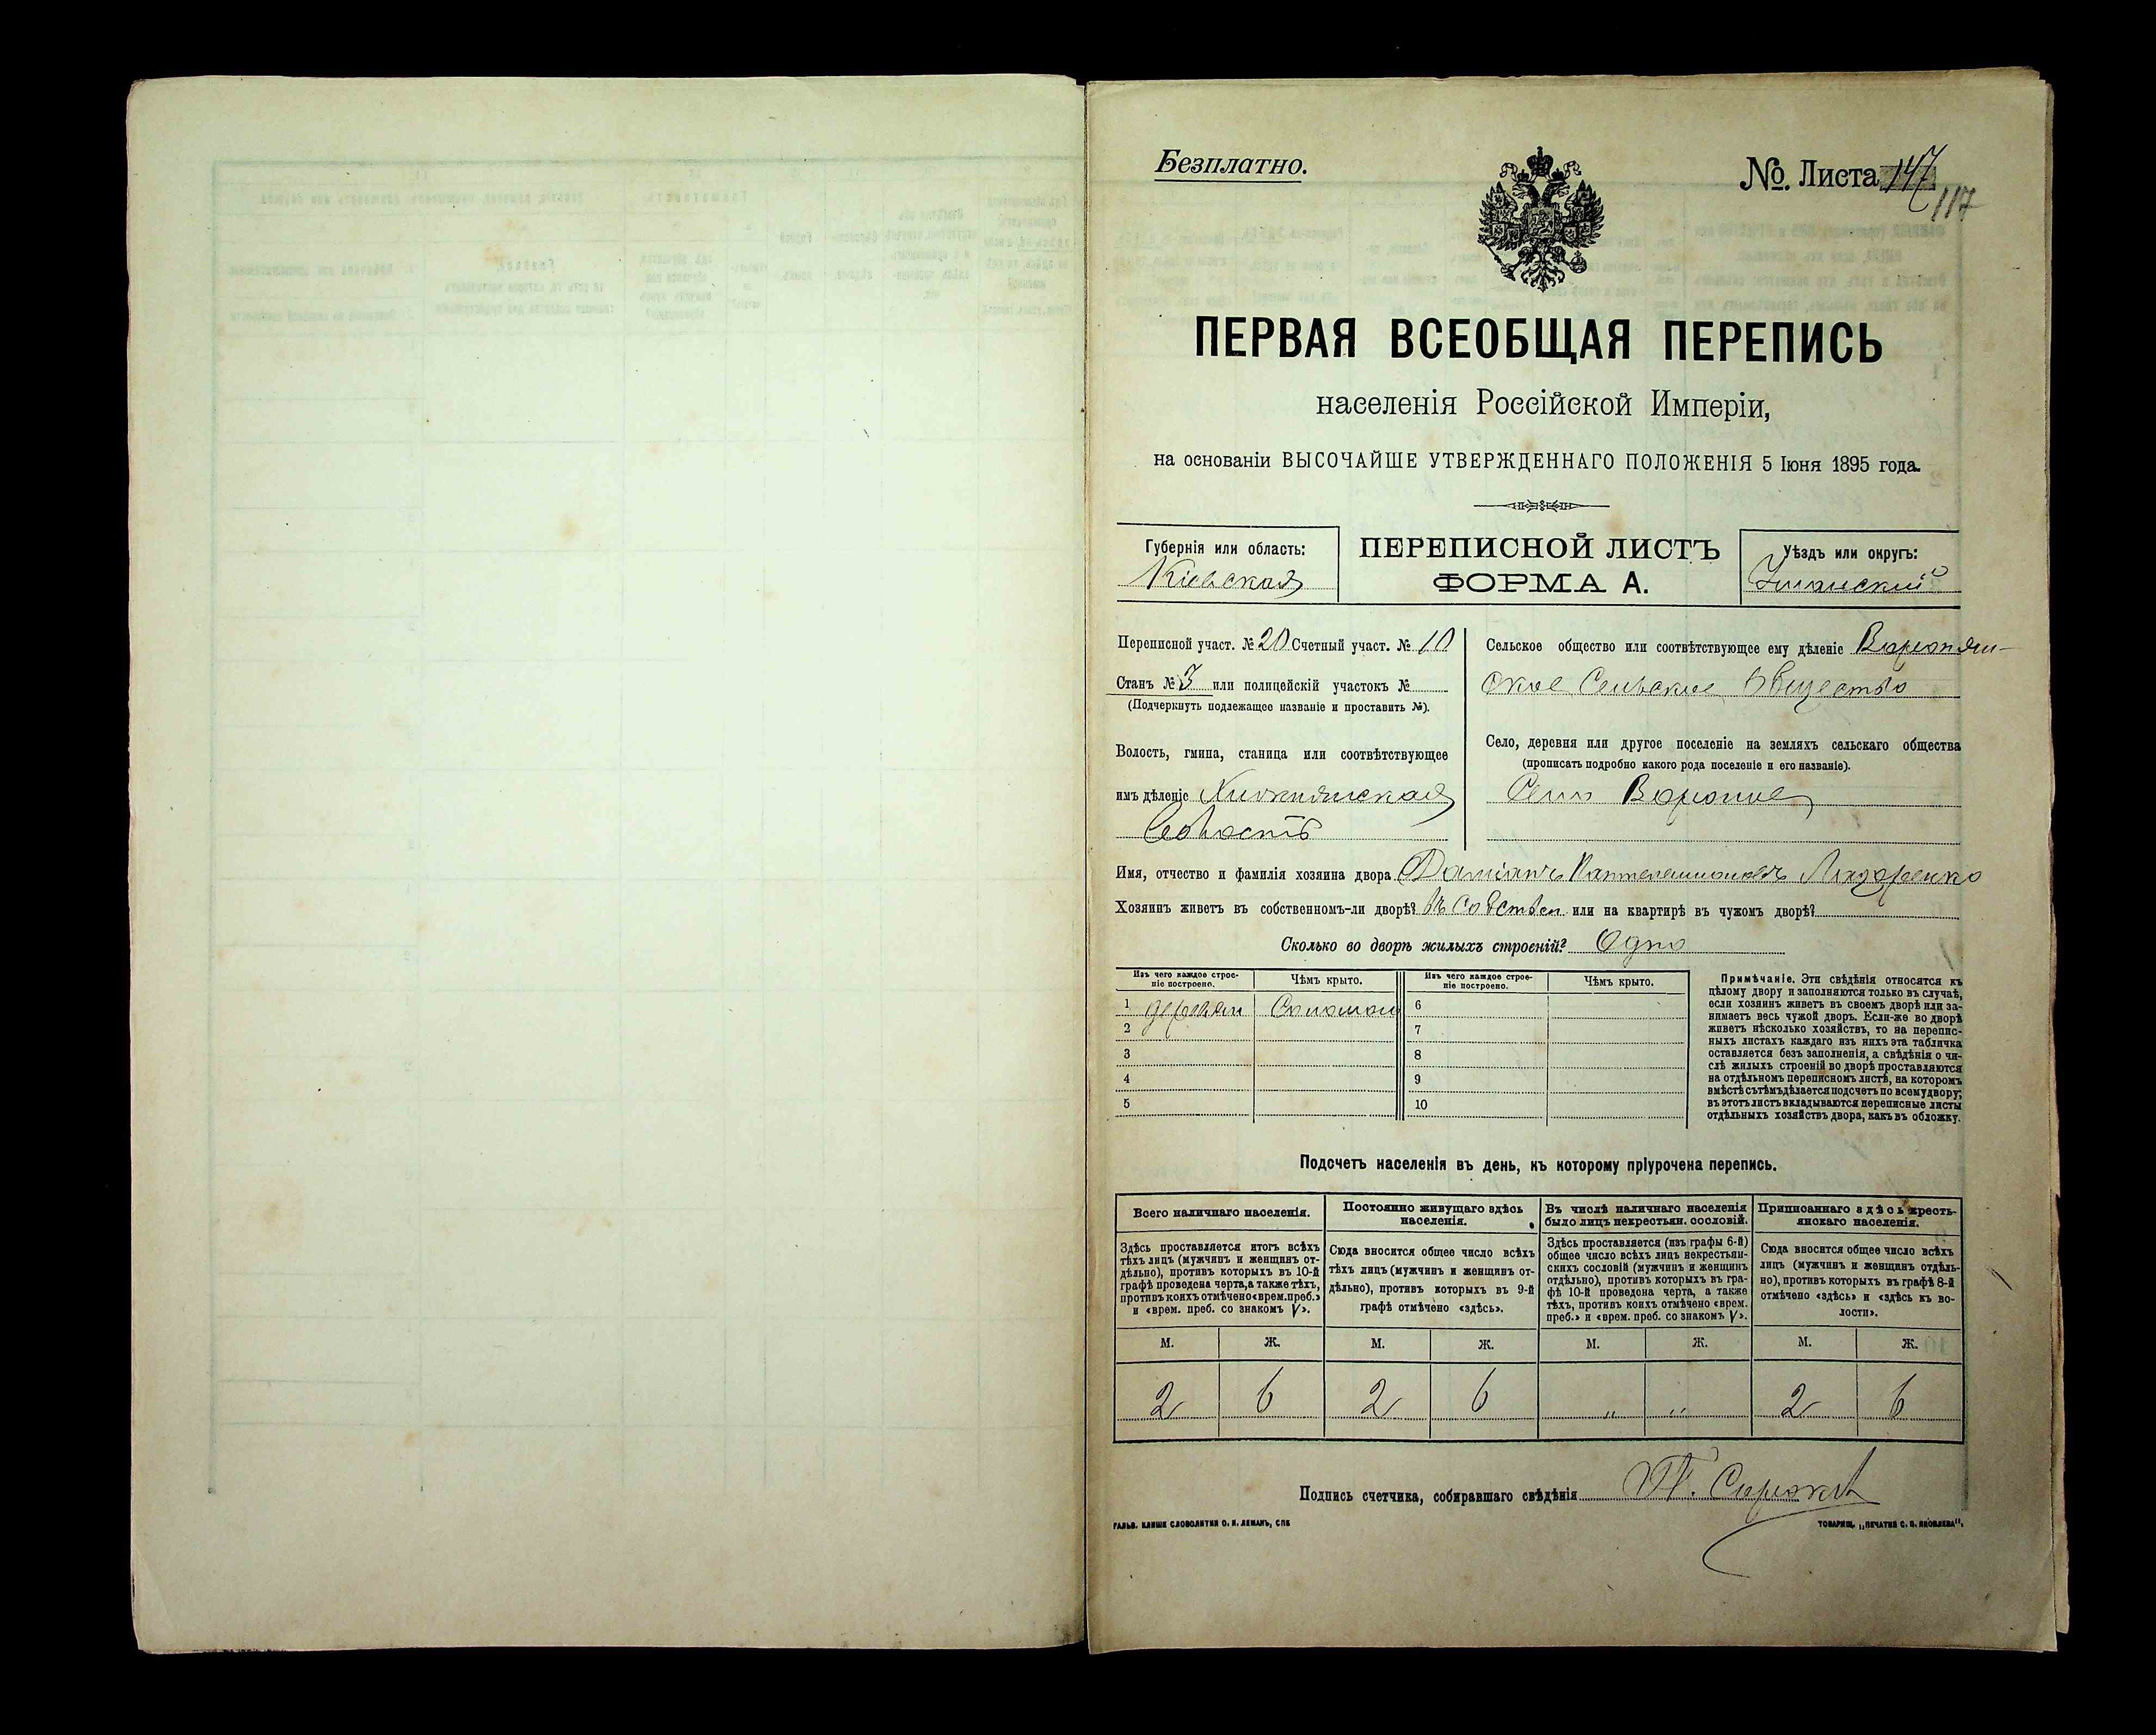 Безплатно.
№. Листа 147
117
ПЕРВАЯ ВСЕОБЩАЯ ПЕРЕПИСЬ
населенія Россійской Имперіи,
на основаніи ВЫСОЧАЙШЕ УТВЕРЖДЕННАГО ПОЛОЖЕНІЯ 5 Іюня 1895 года.
Губернія или область:
Кіевская
ПЕРЕПИСНОЙ ЛИСТЪ
ФОРМА А.
Уѣздъ или округъ:
Уманский
Переписной участ. № 20 Счетный участ. № 10
Станъ № 3 или полицейскій участокъ №
(Подчеркнуть подлежащее названіе и проставить №).
Волость, гмина, станица или соотвѣтствующее
имъ дѣленіе
Сельское общество или соотвѣтствующее ему дѣленіе
ское Сельское Общество
Село, деревня или другое поселеніе на земляхъ сельскаго общества
(прописать подробно какого рода поселеніе и его названіе).
Село Вороное
Имя, отчество и фамилія хозяина двора Даміанъ Пантелеимоновъ Лазаренко
Хозяинъ живетъ въ собственномъ-ли дворѣ? Въ Собствен или на квартирѣ въ чужомъ дворѣ?
Сколько во дворѣ жилыхъ строеній? Одно
Изъ чего каждое строе-
ніе построено.
Чѣмъ крыто.
Изъ чего каждое строе-
ніе построено.
Чѣмъ крыто.
1 деревян Соломой 6
2 7
3 8
4 9
5 10
Примѣчаніе. Эти свѣдѣнія относятся къ
цѣлому двору и заполняются только въ случаѣ,
если хозяинъ живетъ въ своемъ дворѣ или за-
нимаетъ весь чужой дворъ. Если-же во дворѣ
живетъ нѣсколько хозяйствъ, то на перепис-
ныхъ листахъ каждаго изъ нихъ эта табличка
оставляется безъ заполненія, а свѣдѣнія о чи-
слѣ жилыхъ строеній во дворѣ проставляются
на отдѣльномъ переписномъ листѣ, на которомъ
вмѣстѣ съ тѣмъ дѣлается подсчетъ по всему двору;
въ этотъ листъ вкладываются переписные листы
отдѣльныхъ хозяйствъ двора, какъ въ обложку.
Подсчетъ населенія въ день, къ которому пріурочена перепись.
Всего наличнаго населенія.
Здѣсь проставляется итогъ всѣхъ
тѣхъ лицъ (мужчинъ и женщинъ от-
дѣльно), противъ которыхъ въ 10-й
графѣ проведена черта, а также тѣхъ,
противъ коихъ отмѣчено «врем. преб.»
и «врем. преб. со знакомъ V».
Постоянно живущаго здѣсь
населенія.
Сюда вносится общее число всѣхъ
тѣхъ лицъ (мужчинъ и женщинъ от-
дѣльно), противъ которыхъ въ 9-й
графѣ отмѣчено «здѣсь».
Въ числѣ наличнаго населенія
было лицъ некрестьян. сословій.
Здѣсь проставляется (изъ графы 6-й)
общее число всѣхъ лицъ некрестьян-
скихъ сословій (мужчинъ и женщинъ
отдѣльно), противъ которыхъ въ гра-
фѣ 10-й проведена черта, а также
тѣхъ, противъ коихъ отмѣчено «врем.
преб.» и «врем. преб. со знакомъ V».
Приписаннаго здѣсь кресть-
янскаго населенія.
Сюда вносится общее число всѣхъ
лицъ (мужчинъ и женщинъ отдѣль-
но), противъ которыхъ въ графѣ 8-й
отмѣчено «здѣсь» и «здѣсь къ во-
лости».
М. Ж. М. Ж. М. Ж. М. Ж.
2 6 2 6 „ „ 2 6
Подпись счетчика, собиравшаго свѣдѣнія
ГАЛЬВ. КЛИШЕ СЛОВОЛИТНИ О. И. ЛЕМАНЪ, СПБ
ТОВАРИЩ. „ПЕЧАТНЯ С. П. ЯКОВЛЕВА“.